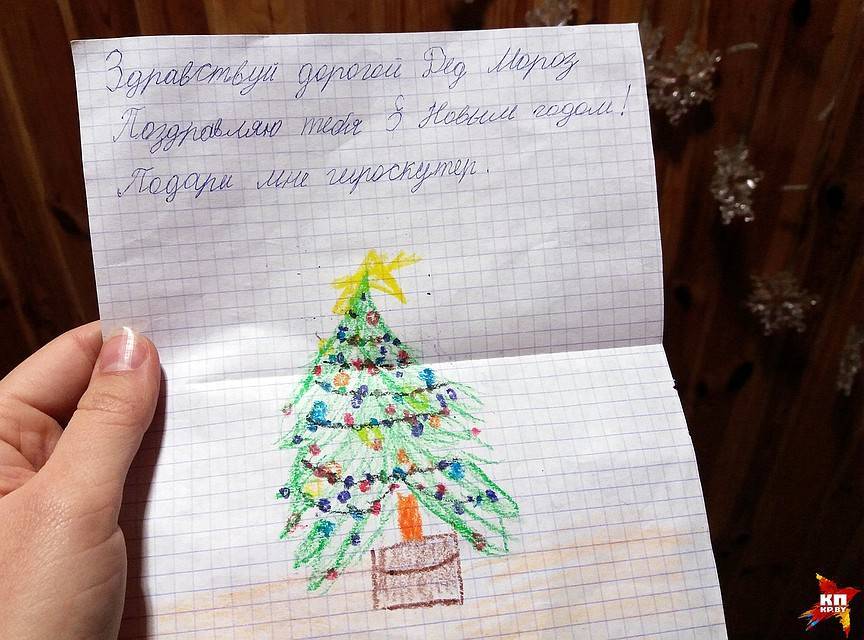 Здравствуй дорогой Дед Мороз
Поздравляю тебя с Новым годом!
Подари мне гироскутер.
КП
KP.BY